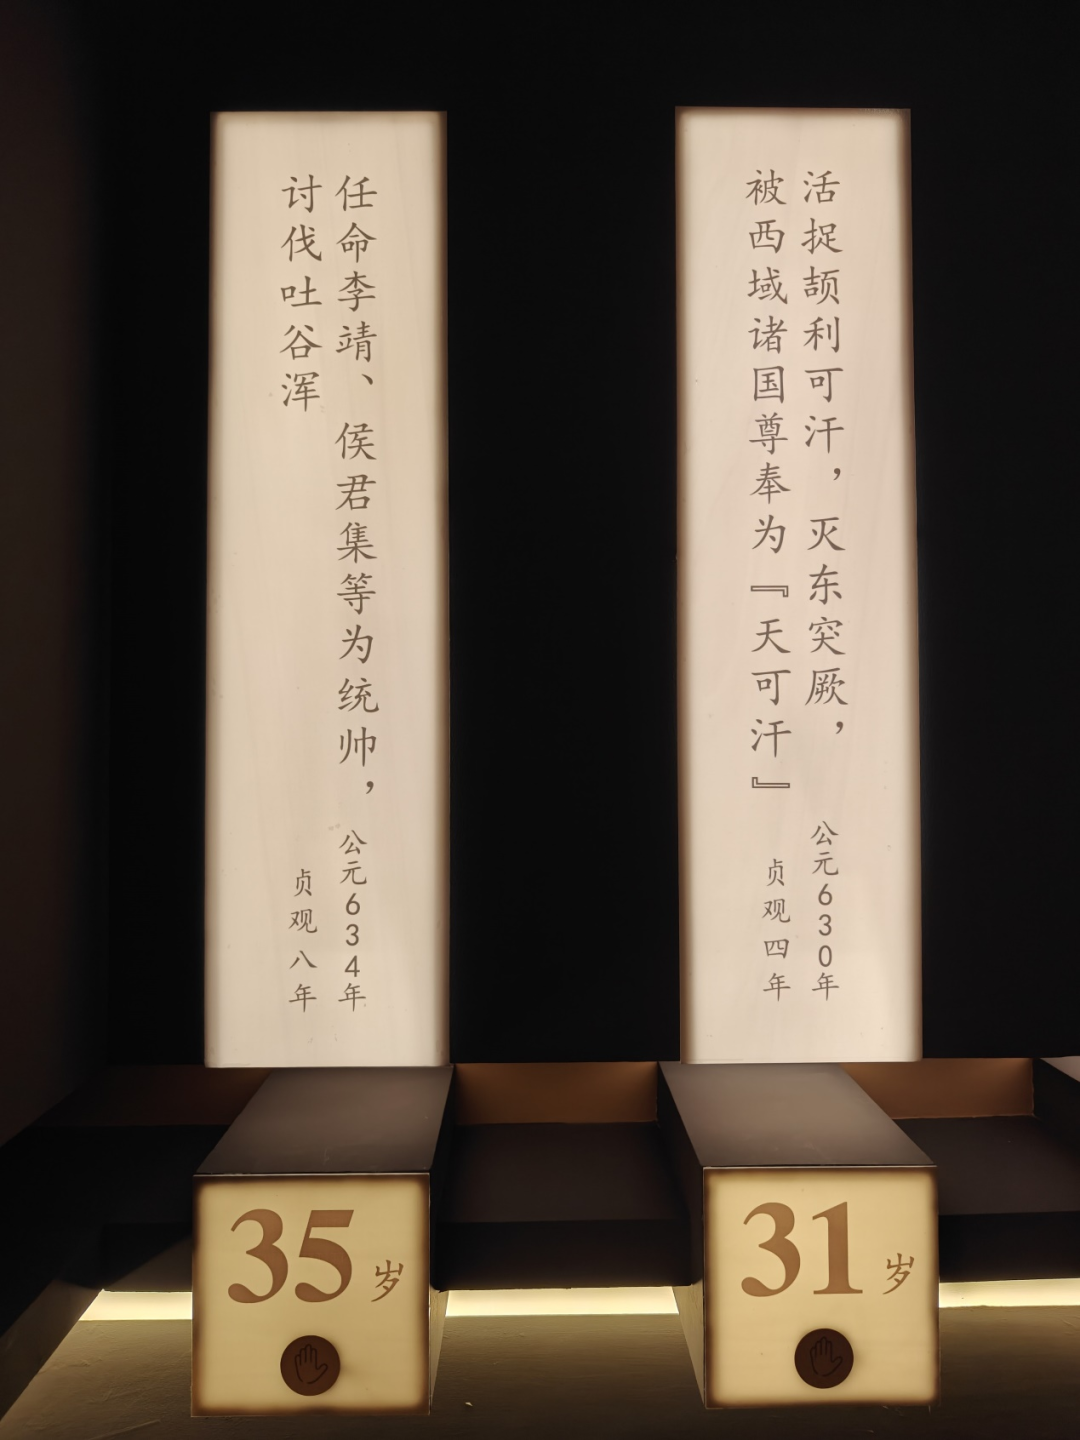 活捉颉利可汗，灭东突厥，
被西域诸国尊奉为『天可汗』
公元630年
贞观四年
31岁
任命李靖、侯君集等为统帅，
讨伐吐谷浑
公元634年
贞观八年
35岁